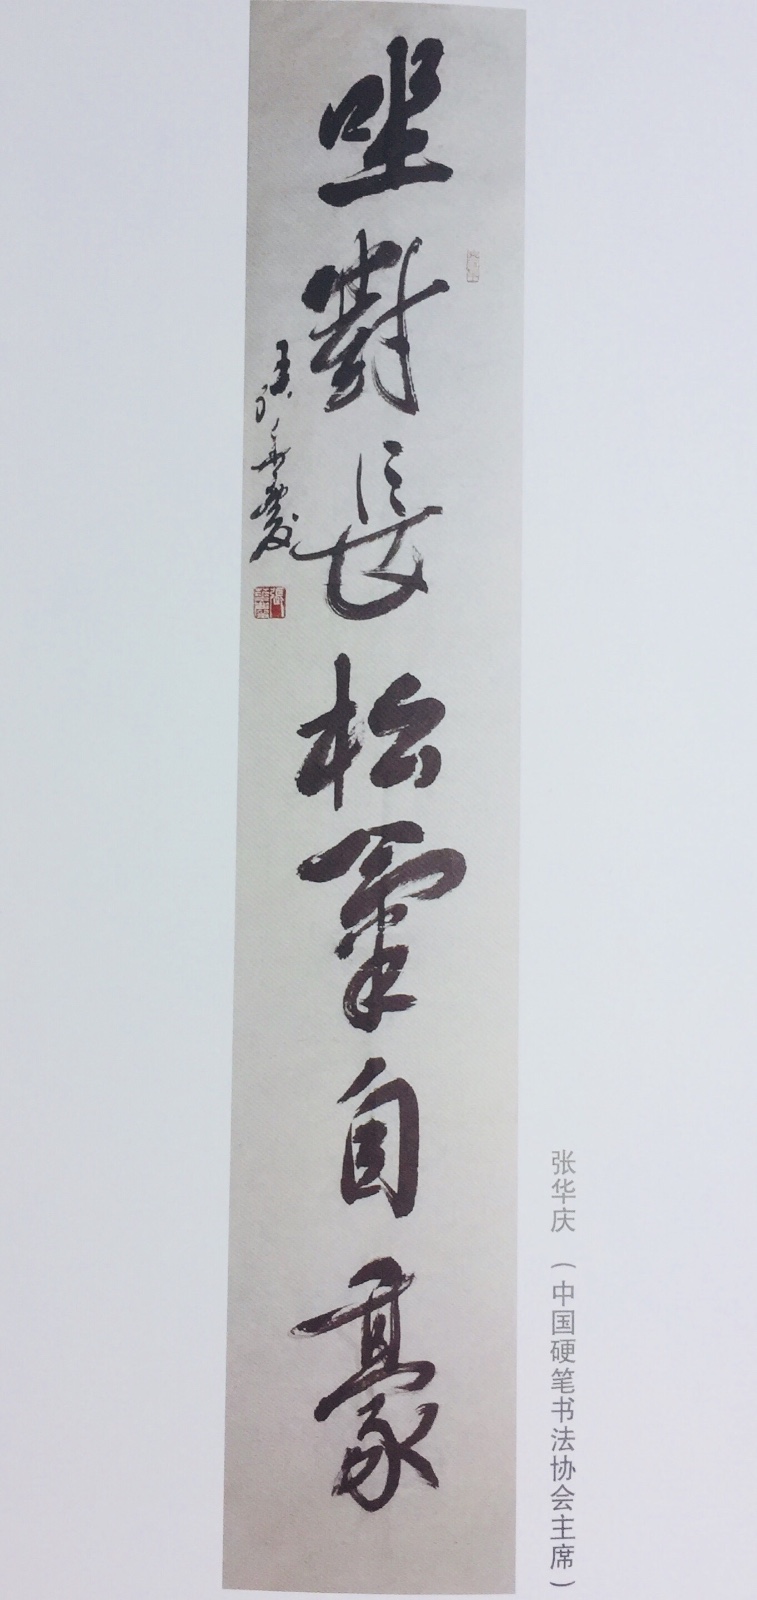 坐對長松氣自豪
張華慶
张华庆（中国硬笔书法协会主席）